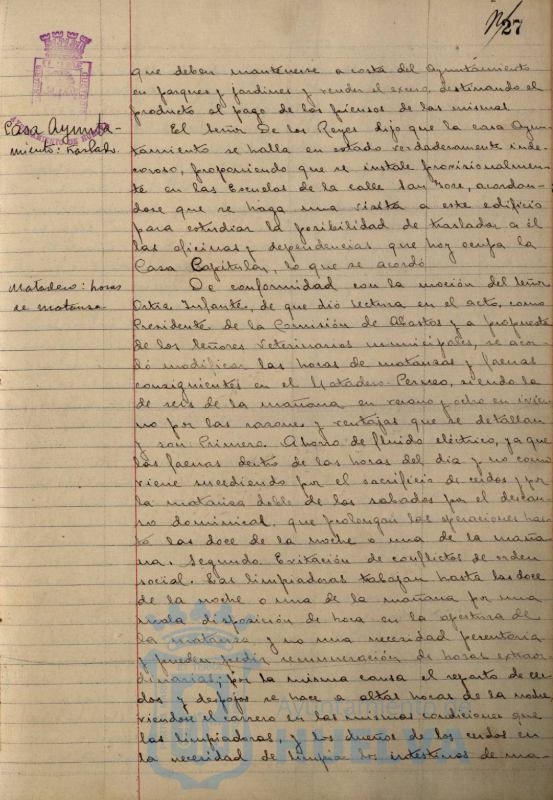 27
que deben mantenerse a costa del Ayuntamiento
en parques y jardines y vender el exceso, destinando el
producto al pago de los piensos de las mismas.
Casa Ayunta-
miento: traslado.
El Señor De los Reyes dijo que la casa Ayun-
tamiento se halla en estado verdaderamente inde-
coroso, proponiendo que se instale provisionalmen-
te en las Escuelas de la calle San José, acordan-
dose que se haga una visita a este edificio
para estudiar la posibilidad de trasladar a él
las oficinas y dependencias que hoy ocupa la
Casa Capitular, lo que se acordó.
Matadero: horas
de matanza.
De conformidad con la moción del Señor
Ortiz Infante, de que dió lectura en el acto, como
Presidente de la Comisión de Abastos y a propuesta
de los Señores Veterinarios municipales, se acor-
dó modificar las horas de matanzas y faenas
consiguientes en el Matadero siendo la
de seis de la mañana en verano y ocho en invier-
no por las razones y ventajas que se detallan
y son Primero. Ahorro de fluido eléctrico, ya que
las faenas dentro de las horas del día y no como
viene sucediendo por el sacrificio de cerdos y por
la matanza doble de los sabados por el descan-
so dominical, que prolongan las operaciones has-
ta las doce de la noche o una de la maña-
na. Segundo Evitación de conflictos de orden
social. Las limpiadoras trabajan hasta las doce
de la noche o una de la mañana por una
mala disposición de hora en la apertura de
la matanza y no una necesidad perentoria
y pueden pedir remuneración de horas extraor-
dinarias; por la misma causa el reparto de cer-
dos y despojos se hace a altas horas de la noche
viendose el carrero en las mismas condiciones que
las limpiadoras, y los dueños de los cerdos en
la necesidad de limpiar los intestinos de ma-
Ayuntamiento de
HUELVA